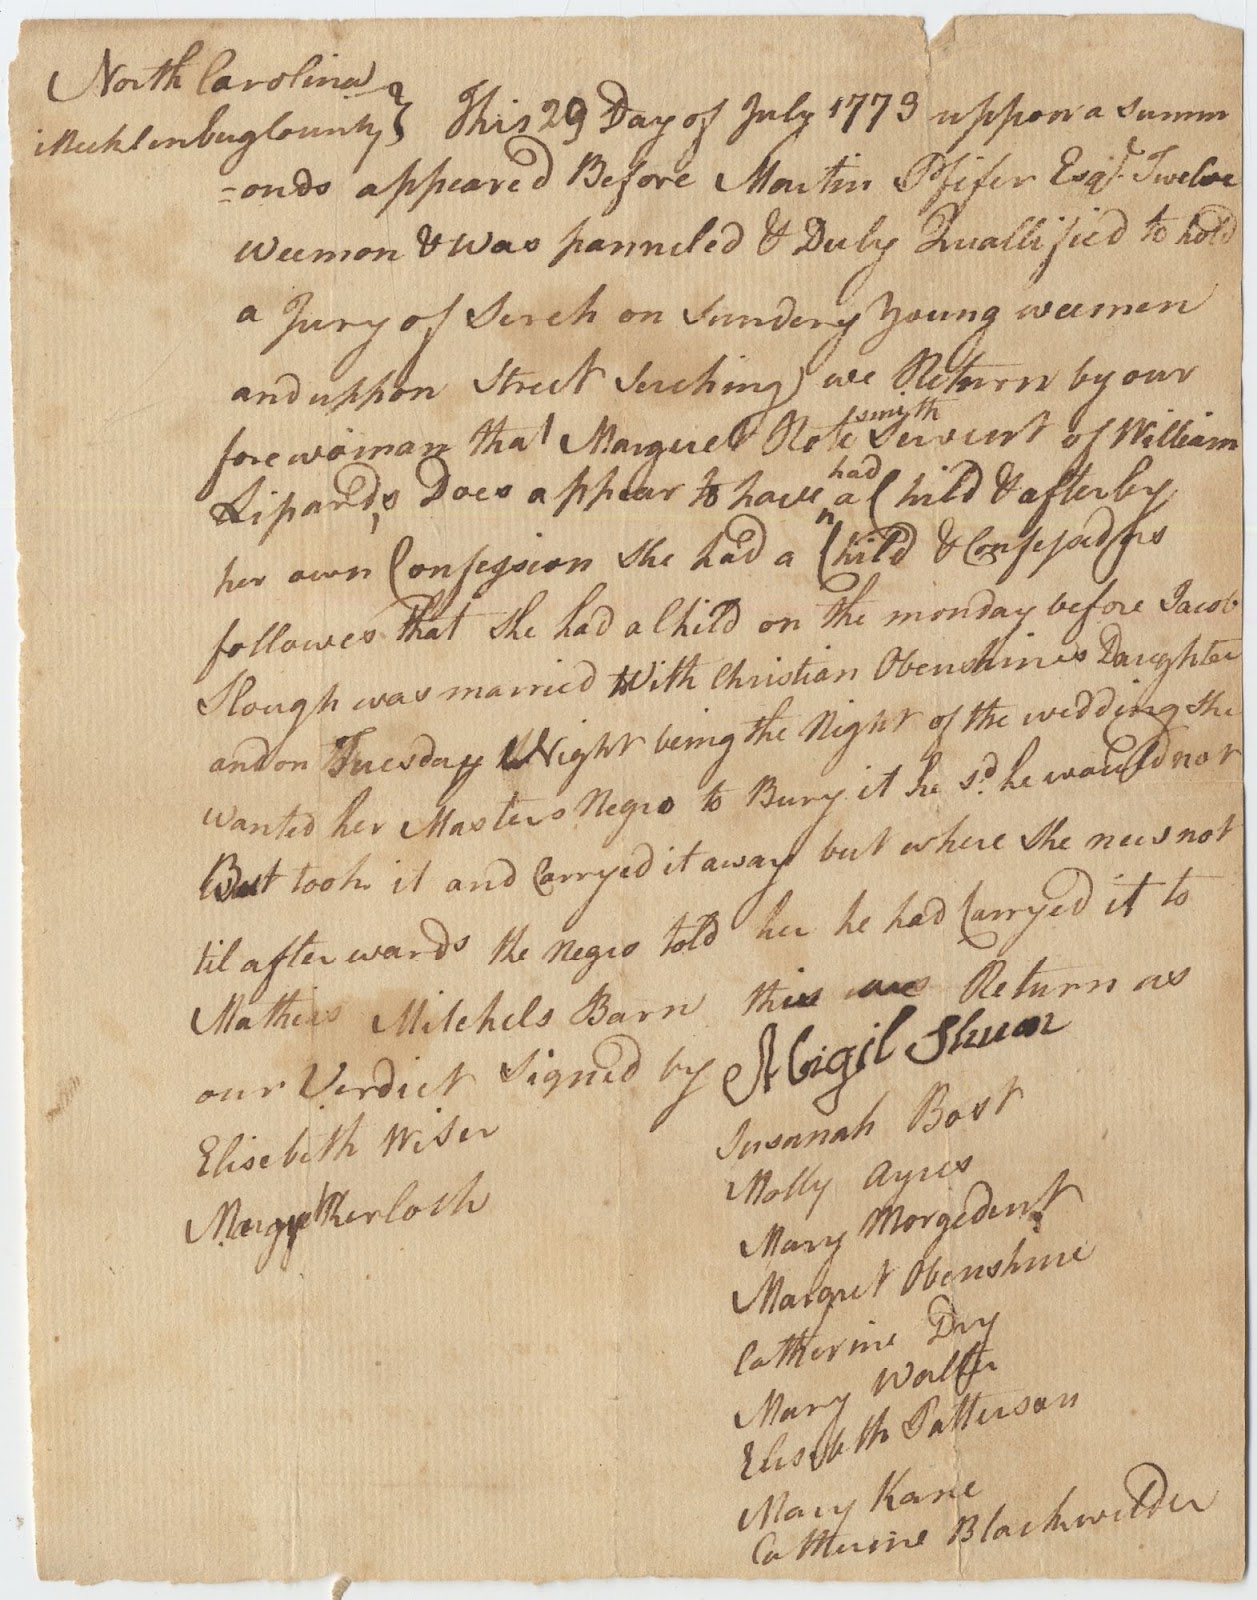 North Carolina
Mecklenbug County } This 29 Day of July 1773 uppon a summ
=onds appeared Before Martin Pfifer Esqr. Twelve
weemon & was panneled & Duly Quallified to hold
a Jury of Serch on Sundery Young weemen
and uppon Street Serching we Return by our
forewoman that Margret Rote smith Servent of William
Lipard,s Does appear to have had a Child & after by
her own Confession She had a Child & Confessed as
followes that She had a Child on the monday before Jacob
Slough was married With Christian Obenshines Daughter
and on Tuesday Night being the Night of the wedding she
wanted her Masters Negro to Bury it he sd. he would not
But took it and Carryed it away but where She news not
til after wards the negro told her he had Carryed it to
Mathias Mitchels Barn this our Return as
our Verdict Signed by Abigil Shuan
Elisebeth Wiser
Margret Kerloch
Susanah Bost
Molly Ayres
Mary Morgedent
Margret Obenshine
Catherine Dry
Mary Walter
Elisebeth Patterson
Mary Kane
Catherine Blackwelder